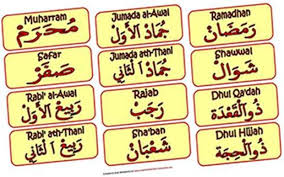 Muharram
مُحَرَّمْ
Safar
صَفَرْ
Rabi' al-Awal
رَبِيعُ الْأَوَّلْ
Rabi' ath-Thani
رَبِيعُ الثَّانِي
Jumada al-Awal
جُمَادُ الأَوَّلْ
Jumada ath-Thani
جُمَادُ الثَّانِي
Rajab
رَجَبْ
Sha'ban
شَعْبَانْ
Ramadhan
رَمَضَانْ
Shawwal
شَوَالْ
Dhul Qa'dah
ذُوالْقَعْدَة
Dhul Hijjah
ذُوالْحِجَّة